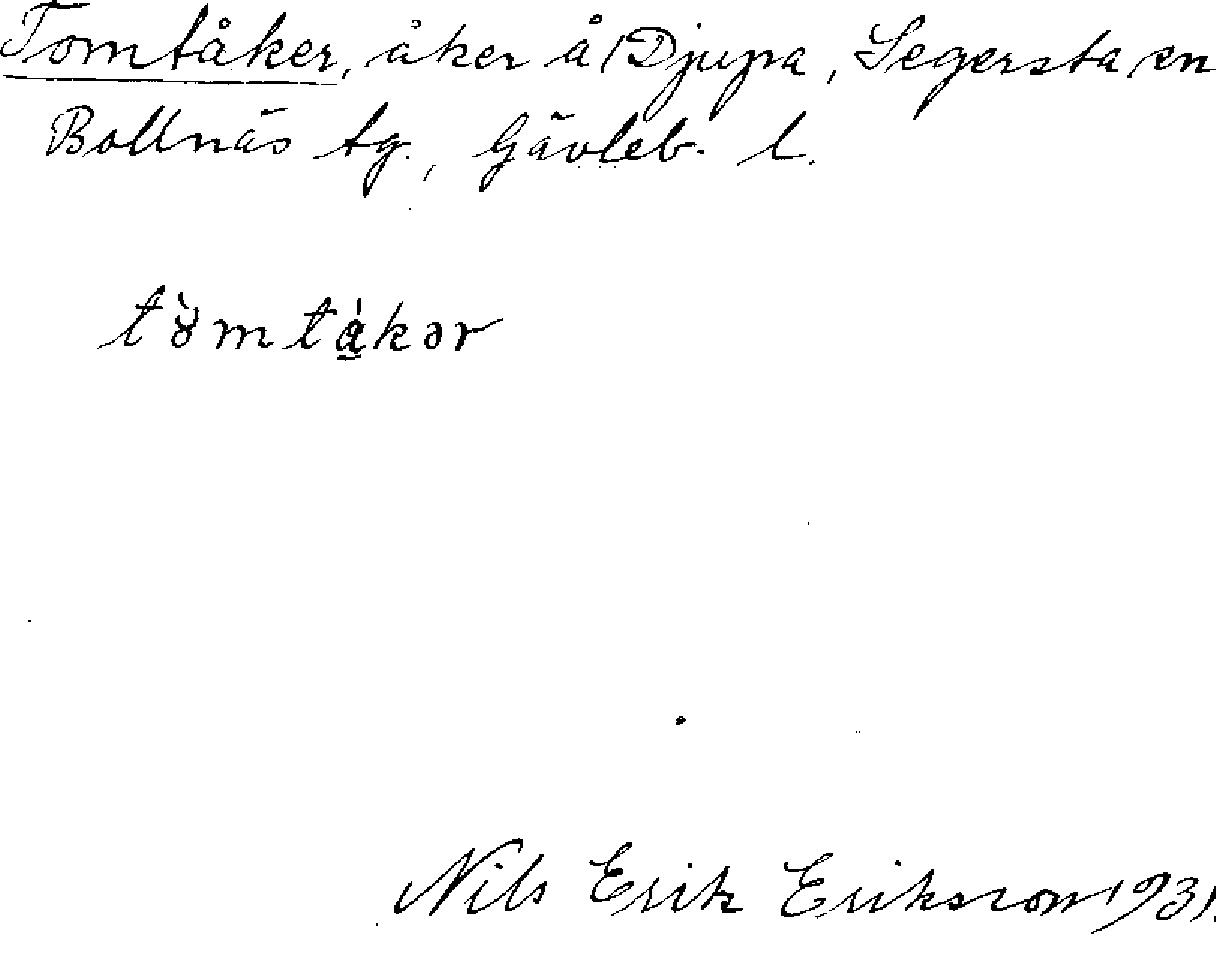 Tomtåker, åker å Djupa, Segersta sn
Bollnäs tg., Gävleb. l.
tòmtàkər
Nils Erik Eriksson 1931.